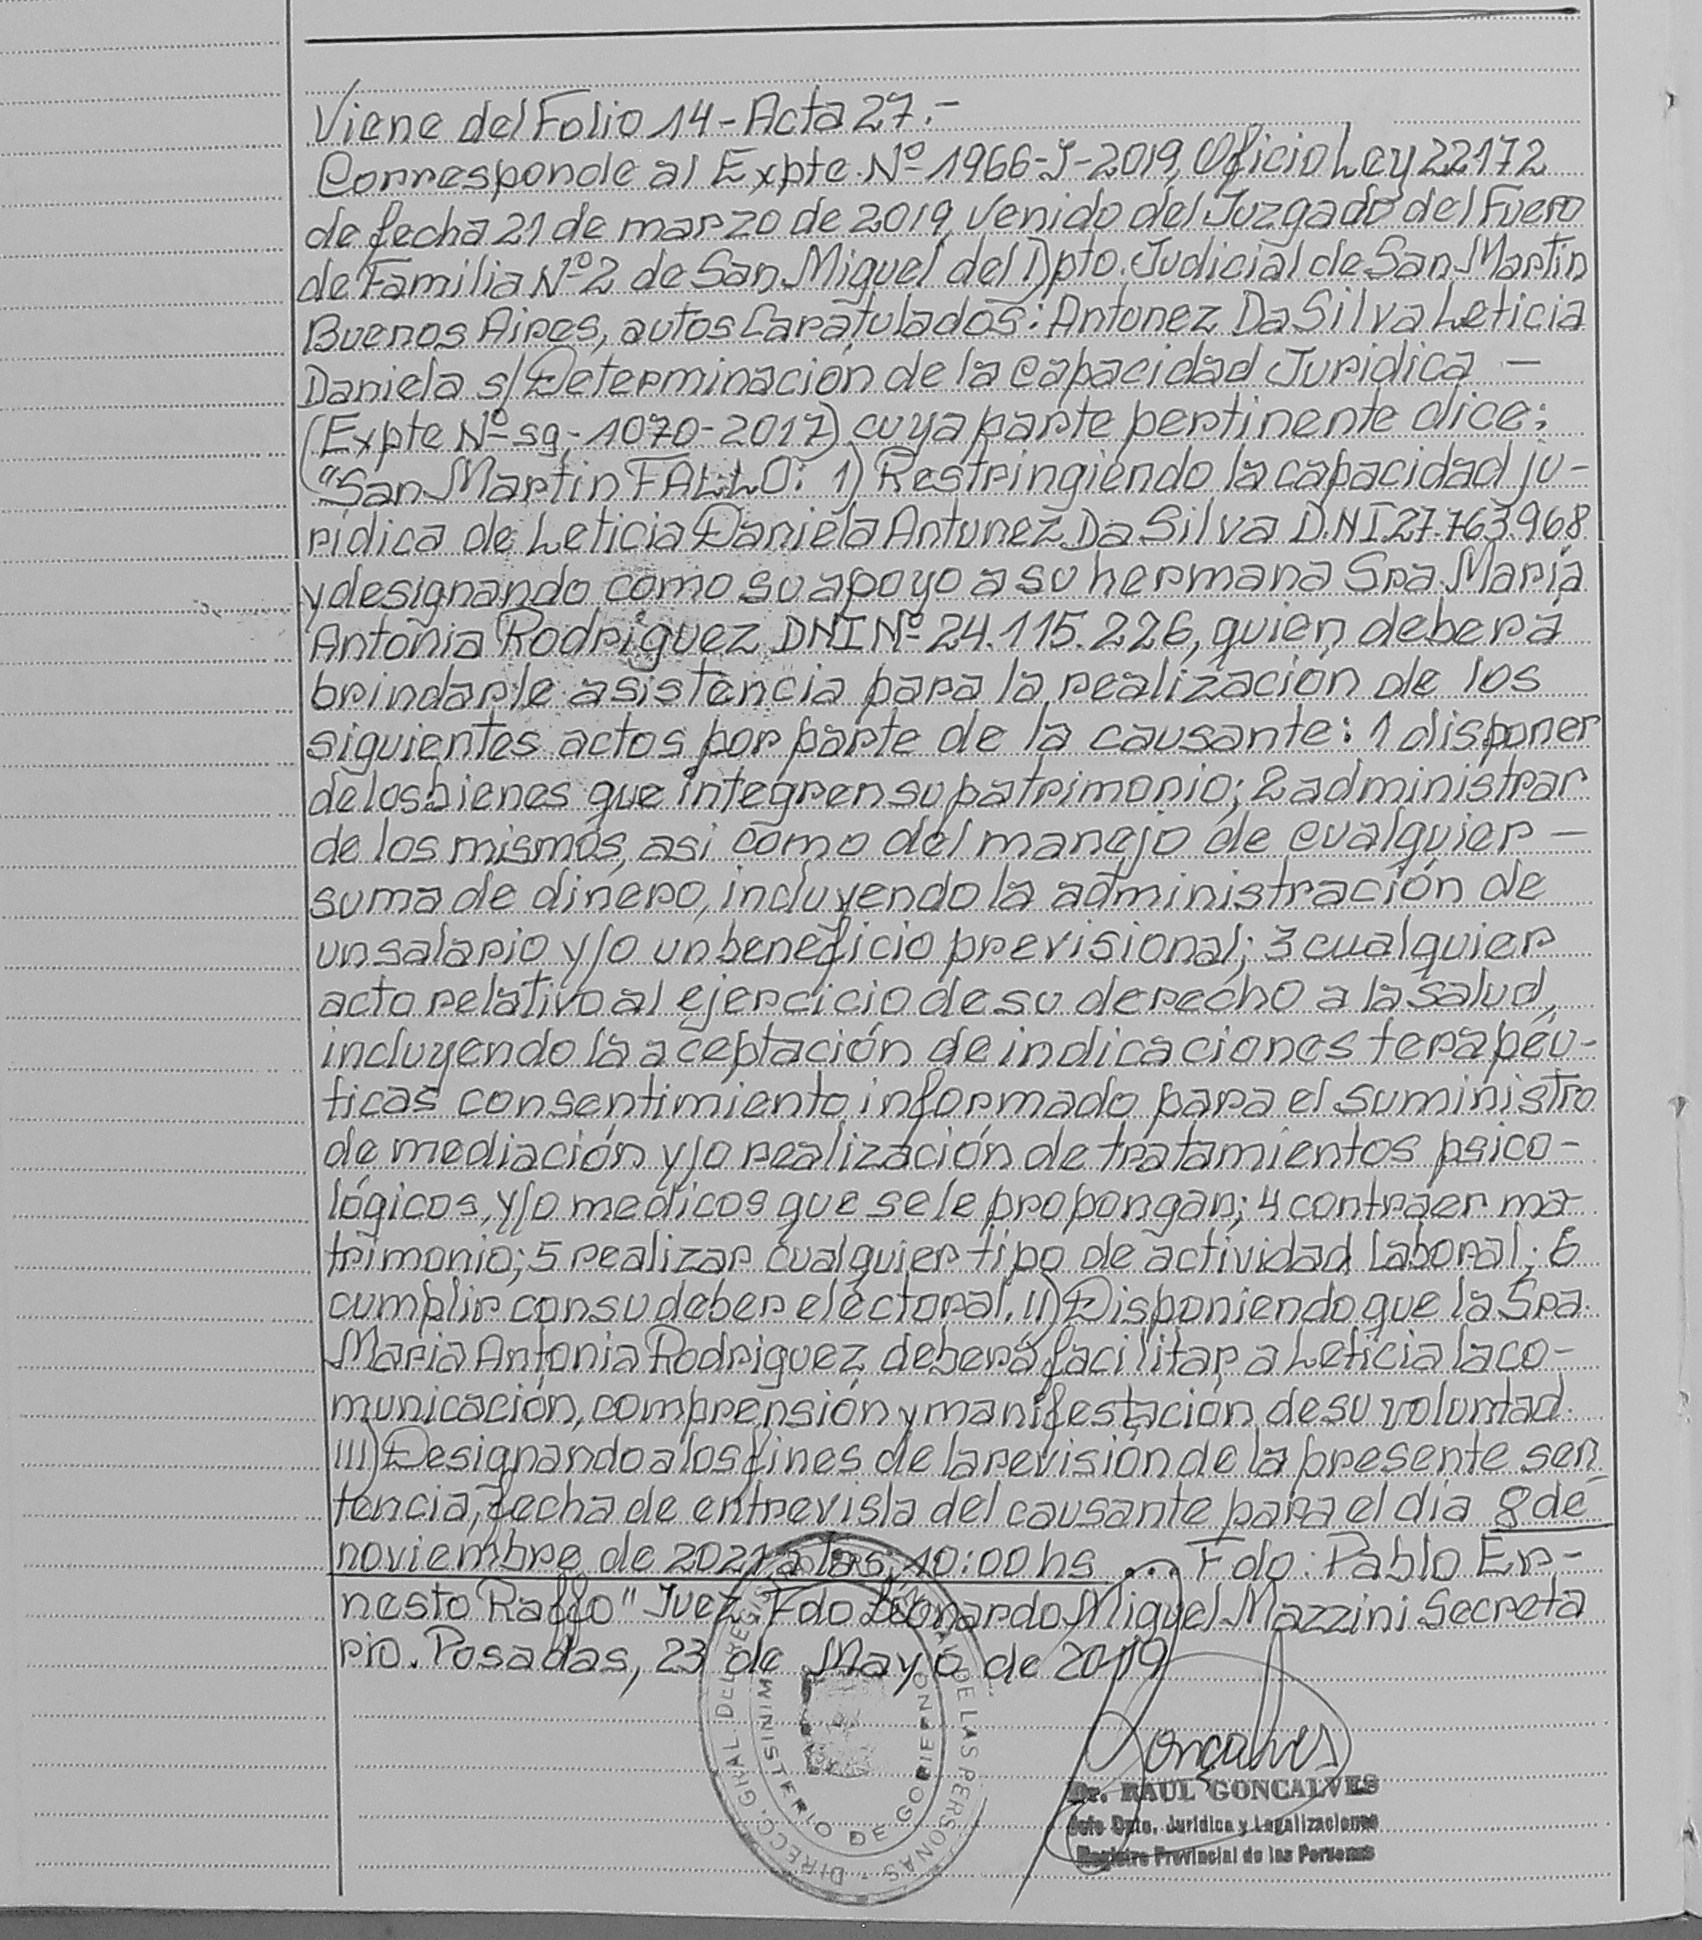 Viene del Folio 14 - Acta 27.-
Corresponde al Expte. Nº 1966-J-2019, Oficio Ley 22172
de fecha 21 de marzo de 2019, venido del Juzgado del Fuero
de Familia Nº 2 de San Miguel del Dpto. Judicial de San Martin
Buenos Aires, autos Caratulados: Antunez Da Silva Leticia
Daniela s/ Determinación de la Capacidad Juridica -
(Expte Nº sg-1070-2017) cuya parte pertinente dice:
"San Martin FALLO: 1) Restringiendo la capacidad ju-
ridica de Leticia Daniela Antunez Da Silva D.N.I 27.763.968
y designando como su apoyo a su hermana Sra. María
Antonia Rodriguez DNI Nº 24.115.226, quien deberá
brindarle asistencia para la realización de los
siguientes actos por parte de la causante: 1 disponer
de los bienes que integren su patrimonio; 2 administrar
de los mismos, asi como del manejo de cualquier -
suma de dinero, incluyendo la administración de
un salario y/o un beneficio previsional; 3 cualquier
acto relativo al ejercicio de su derecho a la salud,
incluyendo la aceptación de indicaciones terapéu-
ticas consentimiento informado para el suministro
de mediación y/o realización de tratamientos psico-
lógicos, y/o medicos que se le propongan; 4 contraer ma-
trimonio; 5 realizar cualquier tipo de actividad laboral; 6
cumplir con su deber electoral. II) Disponiendo que la Sra.
Maria Antonia Rodriguez deberá facilitar a Leticia la co-
municación, comprensión y manifestación de su voluntad.
III) Designando a los fines de la revisión de la presente sen-
tencia, fecha de entrevista del causante para el día 8 de
noviembre de 2021 a las 10:00 hs .... Fdo: Pablo Er-
nesto Raffo" Juez. Fdo Leonardo Miguel Mazzini Secreta
rio. Posadas, 23 de Mayo de 2019
Goncalves
Dr. RAUL GONCALVES
Jefe Dpto. Juridico y Legalizaciones
Registro Provincial de las Personas
DIRECC. GRAL DEL REGISTRO DE LAS PERSONAS
MINISTERIO DE GOBIERNO